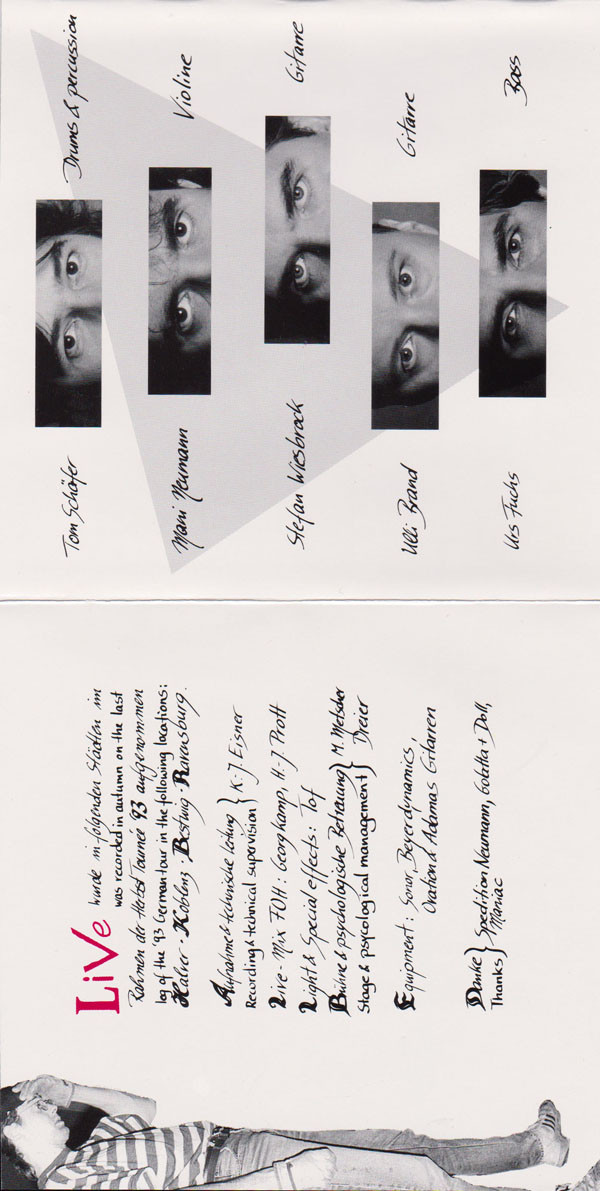 LiVe wurde in folgenden Städten im
was recorded in autumn on the last
Rahmen der Herbst Tourneé '93 aufgenommen
leg of the '93 German tour in the following locations:
Halver · Koblenz, Bestwig, Ravensburg.
Aufnahme & technische Leitung } K.-J. Eisner
Recording & technical supervision
Live-Mix FOH: Georg Kamp, H.-J. Prott
Light & Special effects: Tof
Bühne & psychologische Betreuung } M. Metscher
Stage & psycological management Dreier
Equipment: Sonor, Beyerdynamics,
Ovation & Adamas Gitarren
Danke } Spedition Neumann, + Doll,
Thanks Maniac
Tom Schäfer Drums & percussion
Mani Neumann Violine
Stefan Wiesbrock Gitarre
Ulli Brand Gitarre
Urs Fuchs Bass